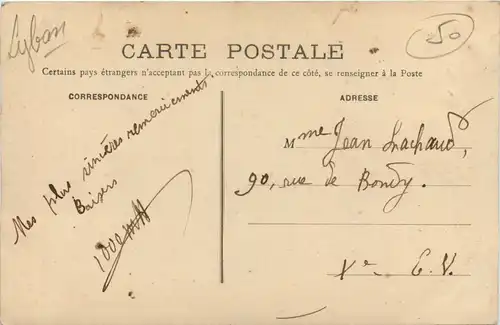 Lyban
50
CARTE POSTALE
Certains pays étrangers n'acceptant pas la correspondance de ce côté, se renseigner à la Poste
CORRESPONDANCE
Mes plus sincères remerciements
Baisers
ADRESSE
Mme Jean Lachaud,
90, rue de Bondy.
Xe